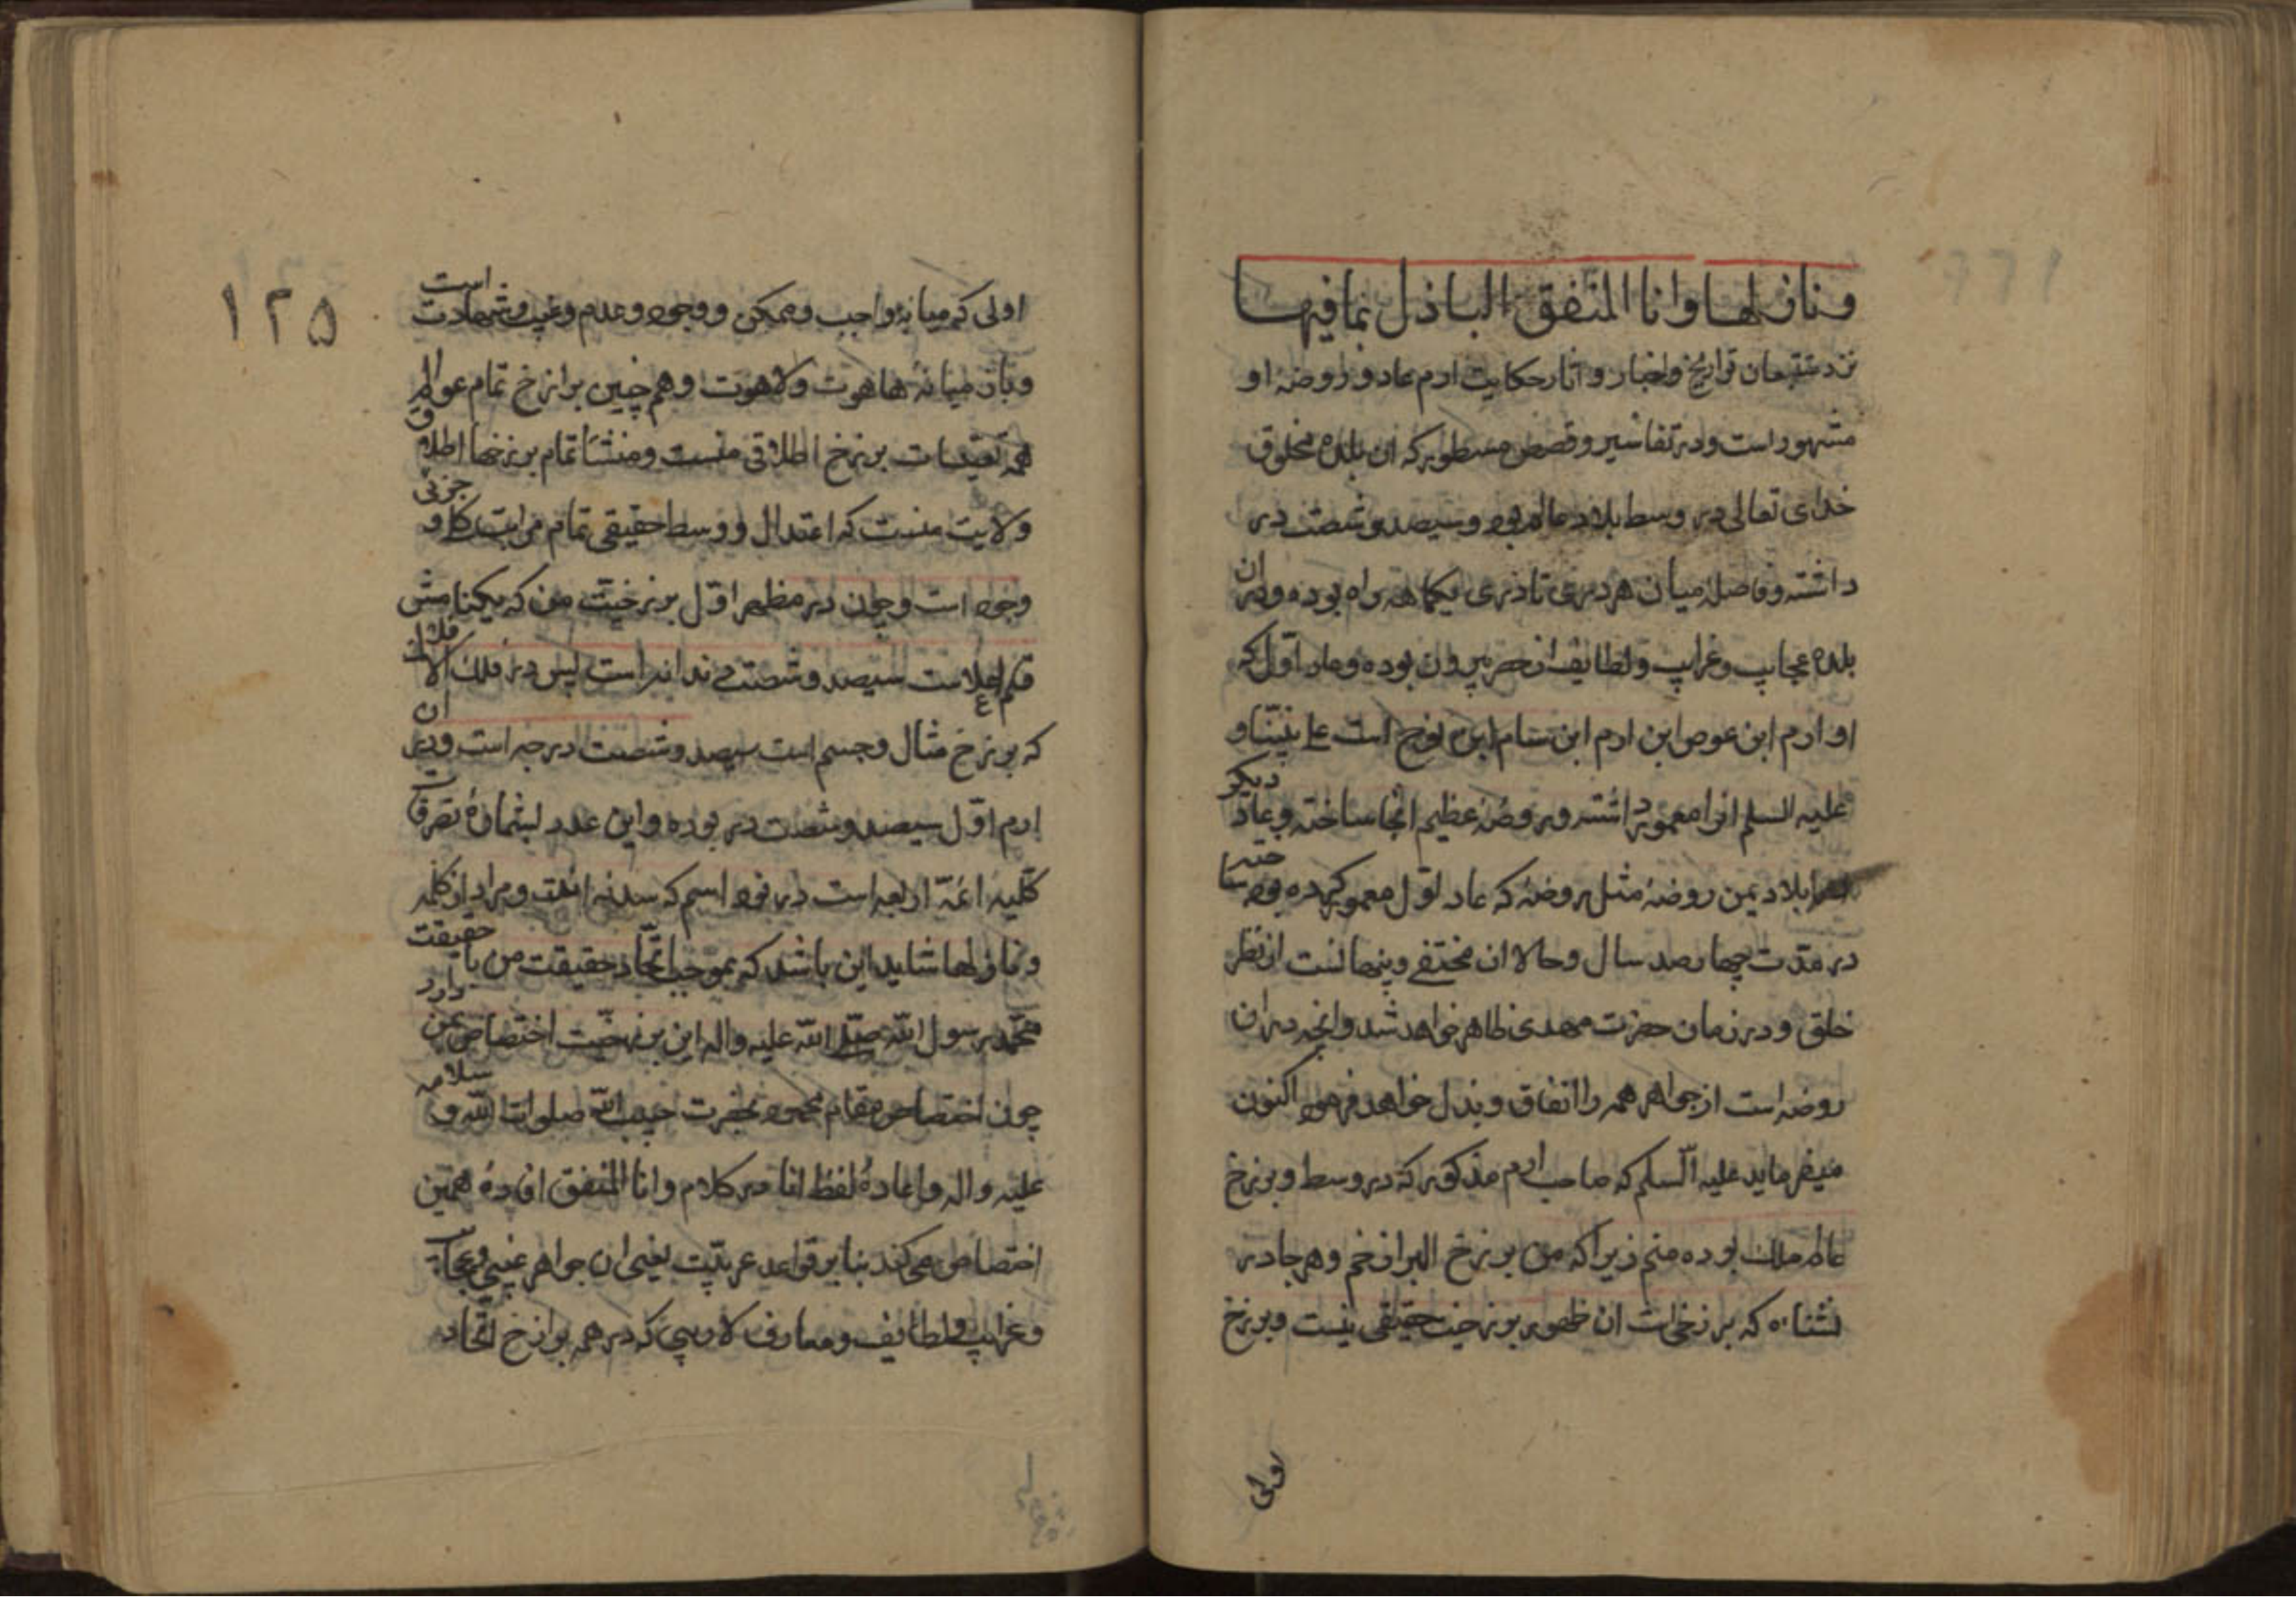 ونازلها وانا المنفق الباذل بمافیها
نزد متتبعان تواریخ واخبار و اثار حکایت ارم عاد و روضهٔ او
مشهور است و در تفاسیر و قصص مسطور که ان بلده مخلوق
خدای تعالی در وسط بلاد عالم بوده و سیصد و شصت در
داشته و فاصلهٔ میان هر دری تا دری یکماهه راه بوده و در ان
بلده عجایب و غرایب و لطایف از حصر بیرون بوده و عاد اول که
او ارم ابن عوص ابن ارم ابن سام ابن نوح است علی نبینا و
علیه السلم انرا معمور داشته و روضهٔ عظیم انجا ساخته و عاد دیکر
بلاد یمن روضهٔ مثل روضهٔ که عاد اول معمور کرده بود ساخته
در مدت چهارصد سال و حالا ان مختفی و پنهانست از نظر
خلق و در زمان حضرت مهدی ظاهر خواهد شد و انچه در ان
روضه است از جواهر همه را انفاق و بذل خواهد فرمود اکنون
میفرماید علیه السلم که صاحب ارم مذکور که در وسط و برزخ
عالم ملک بوده منم زیرا که من برزخ البرازخم و هر جا در
نشناه که برزخیات ان ظهور برزخیت حقیقی نیست و برزخ
اولی
۱۲۵
اولی که میانهٔ واجب و ممکن و وجود و عدم و غیب و شهادت است
و بان میانهٔ هاهوت و لاهوت و هم چنین برازخ تمام عوالم
همه تقیدات برزخ اطلاقی منست و منشأ تمام برزخها اطلاق
ولایت منست که اعتدال و وسط حقیقی تمام مراتب کل و جزئی
وجود است و چون در مظهر اول برزخیت من که یکنامش
قلم اعلاست سیصد و شصت دندانه است پس در فلک الافلاک
که برزخ مثال و جسم است سیصد و شصت درجه است و در ان
ارم اول سیصد و شصت در بوده و این عدد بشمارهٔ تصرفات
کلیه ائمّهٔ اربعه است در نود اسم که سدنه ائمه و مراد از کلمه
ونازلها شاید این باشد که بموجب اتّحاد حقیقت من با حقیقت
محمّد رسول اللّه صلّی اللّه علیه واله این برزخیّت اختصاص بمن دارد
چون اختصاص مقام محمود بحضرت حبیب اللّه صلوات اللّه و سلامه
علیه و اله و اعادهٔ لفظ انا در کلام وانا المنفق افادهٔ همین
اختصاص می کند بنا بر قواعد عربیّت یعنی ان جواهر غیبی و عجایب
و غرایب و لطایف و معارف لاریبی که در همه برازخ اتّحاد